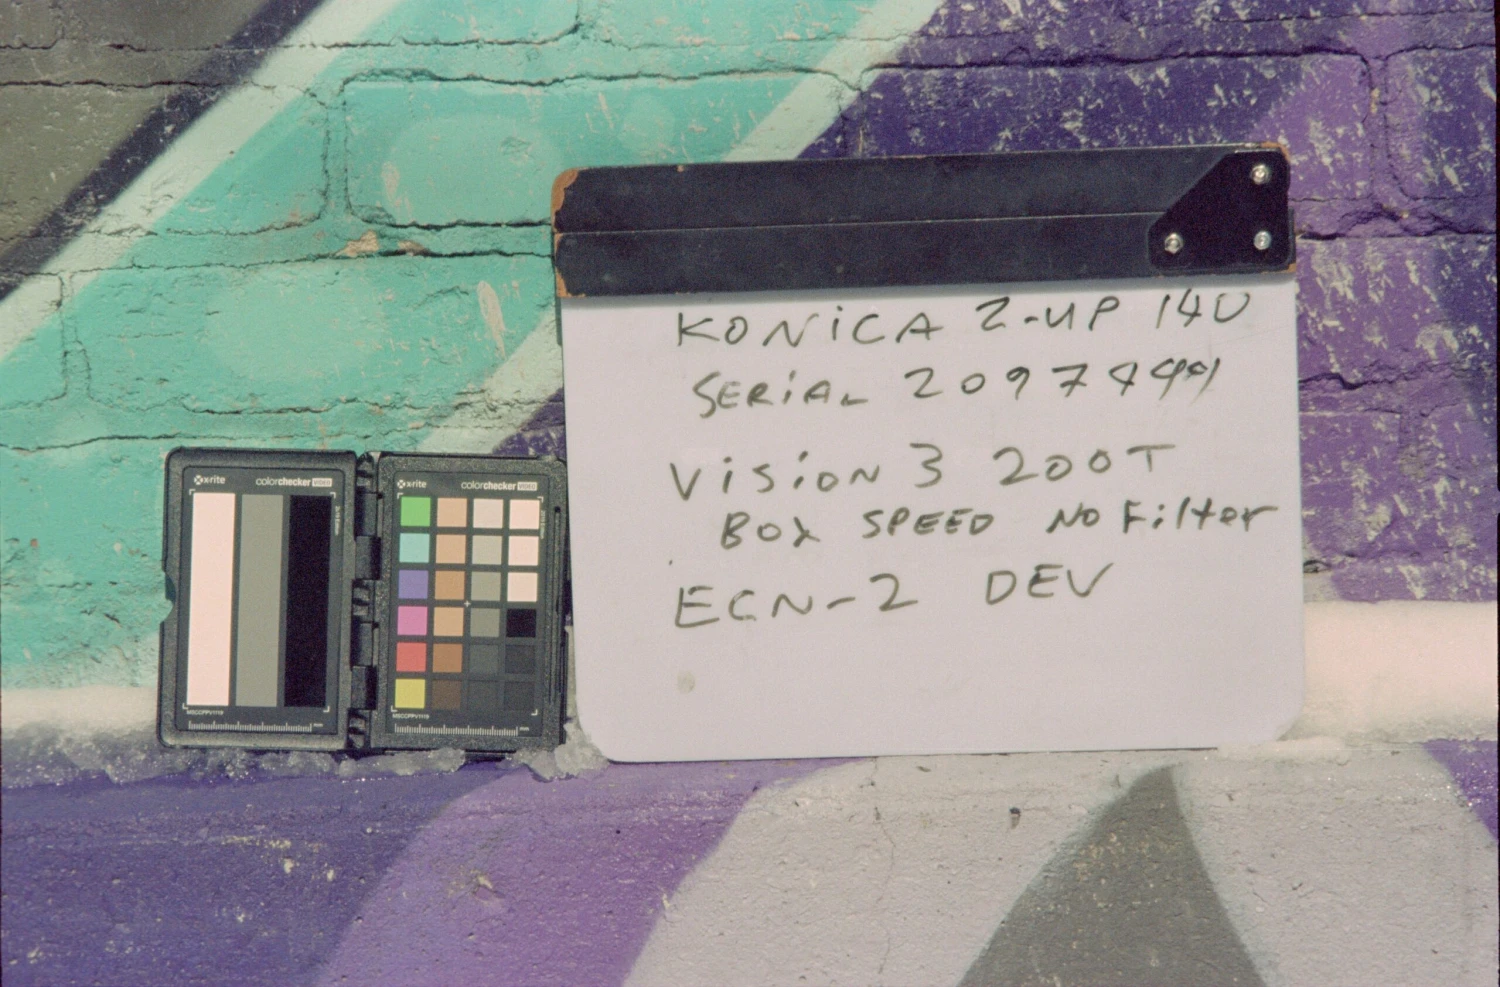 KONiCA Z-UP 140
SERiAL
ViSiON 3 200T
BOX SPEED NO Filter
ECN-2 DEV
x-rite colorchecker VIDEO
x-rite colorchecker VIDEO
MSCCPPV1119
mm
MSCCPPV1119
mm